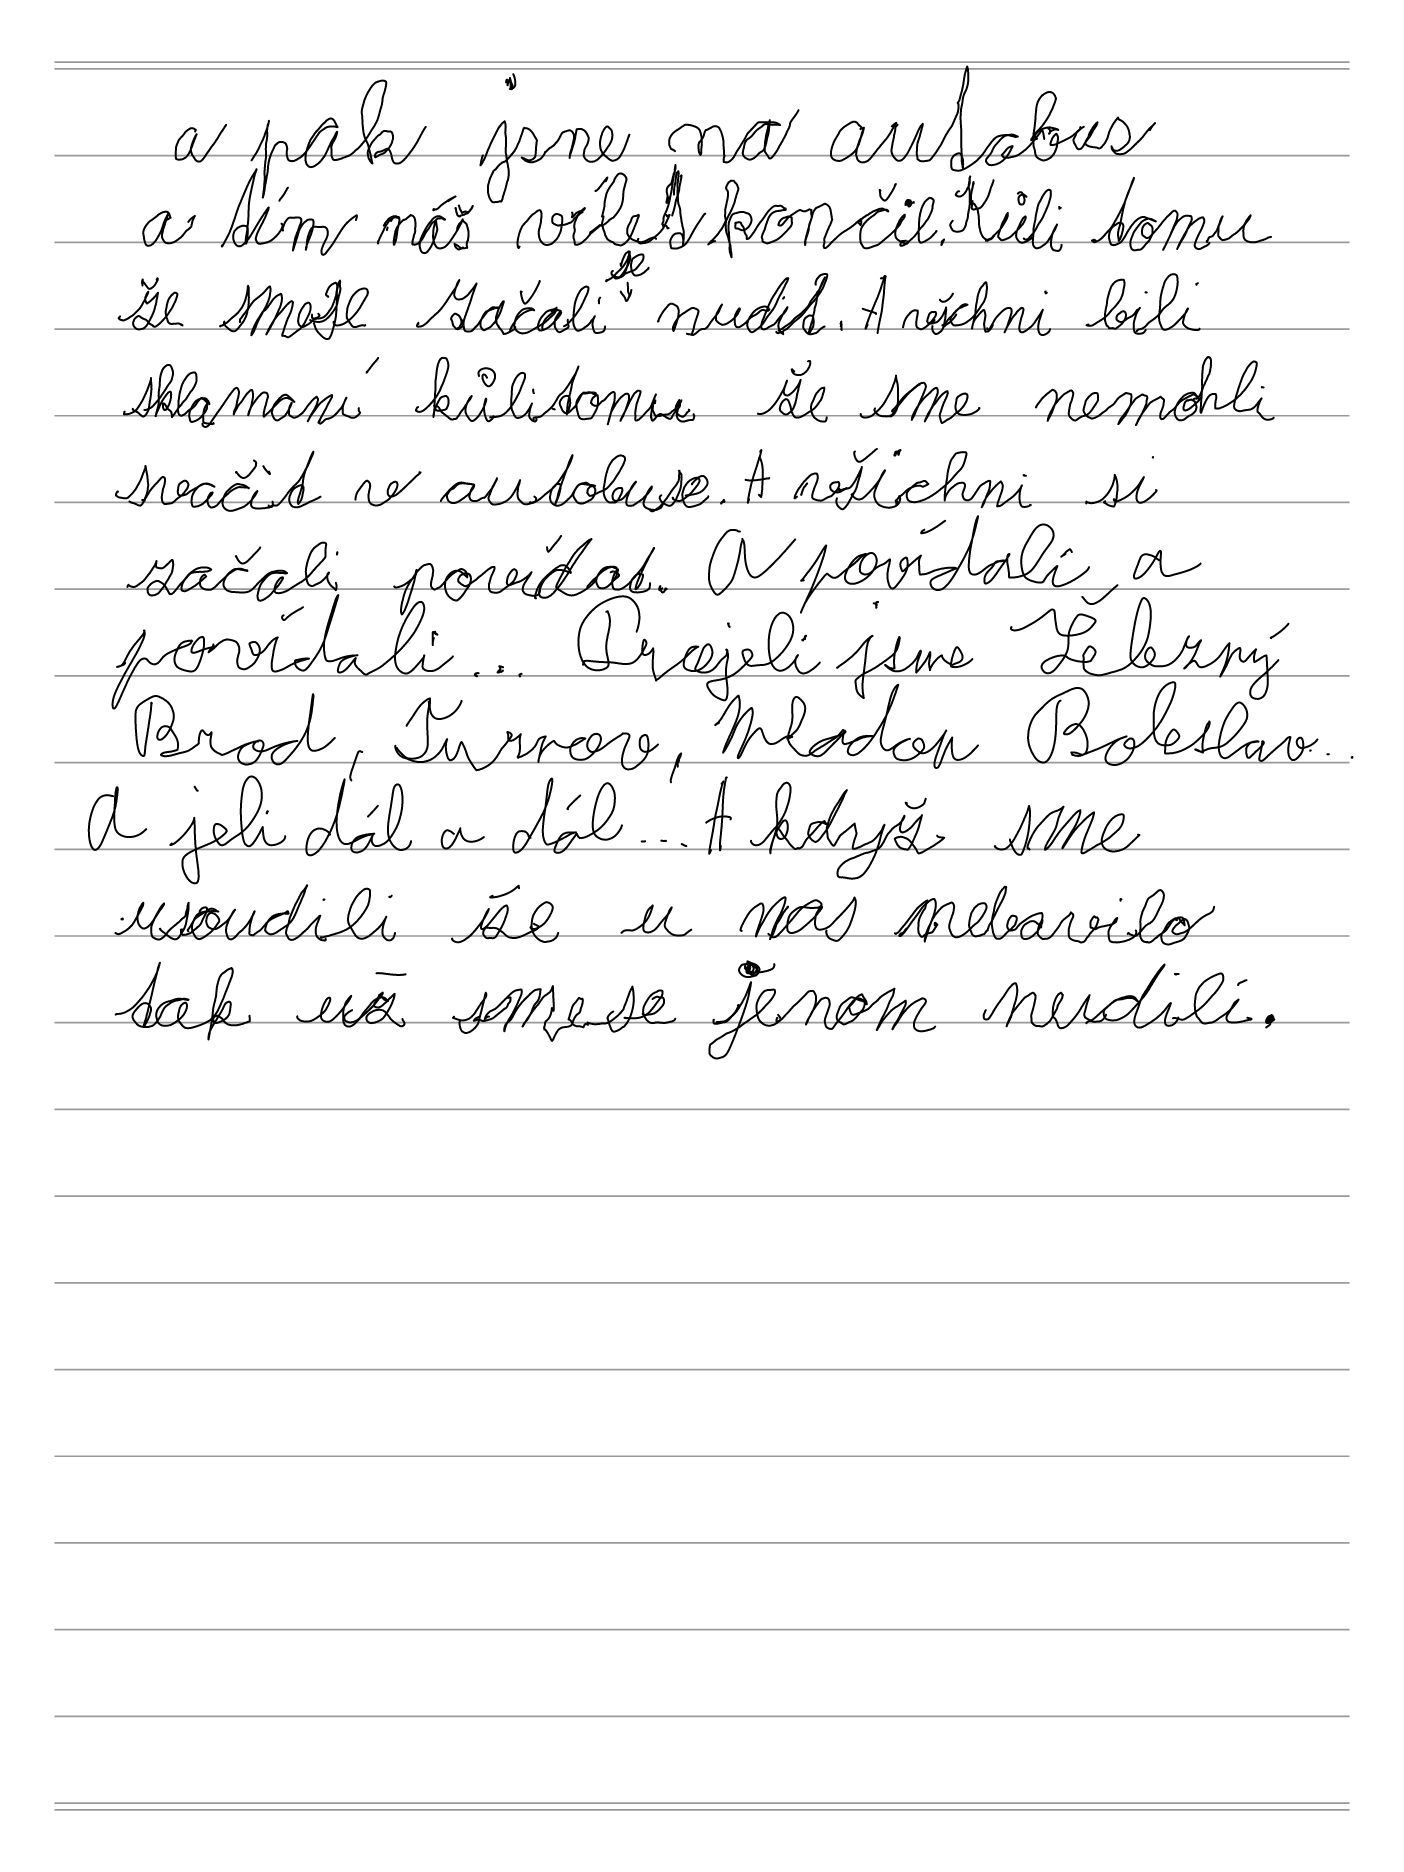 a pak jsne na autobus
a tím náš vílet končil. Kůli tomu
že smese začali se nudit. A všichni bili
sklamaní kůlitomu že sme nemohli
svačit v autobuse. A všichni si
začali povídat. A povídali a
povídali... Projeli jsme Želežný
Brod, Turnov, Mladou Boleslav..
A jeli dál a dál... A když sme
usoudili že u nas nebavilo
tak už smese jenom nudili.